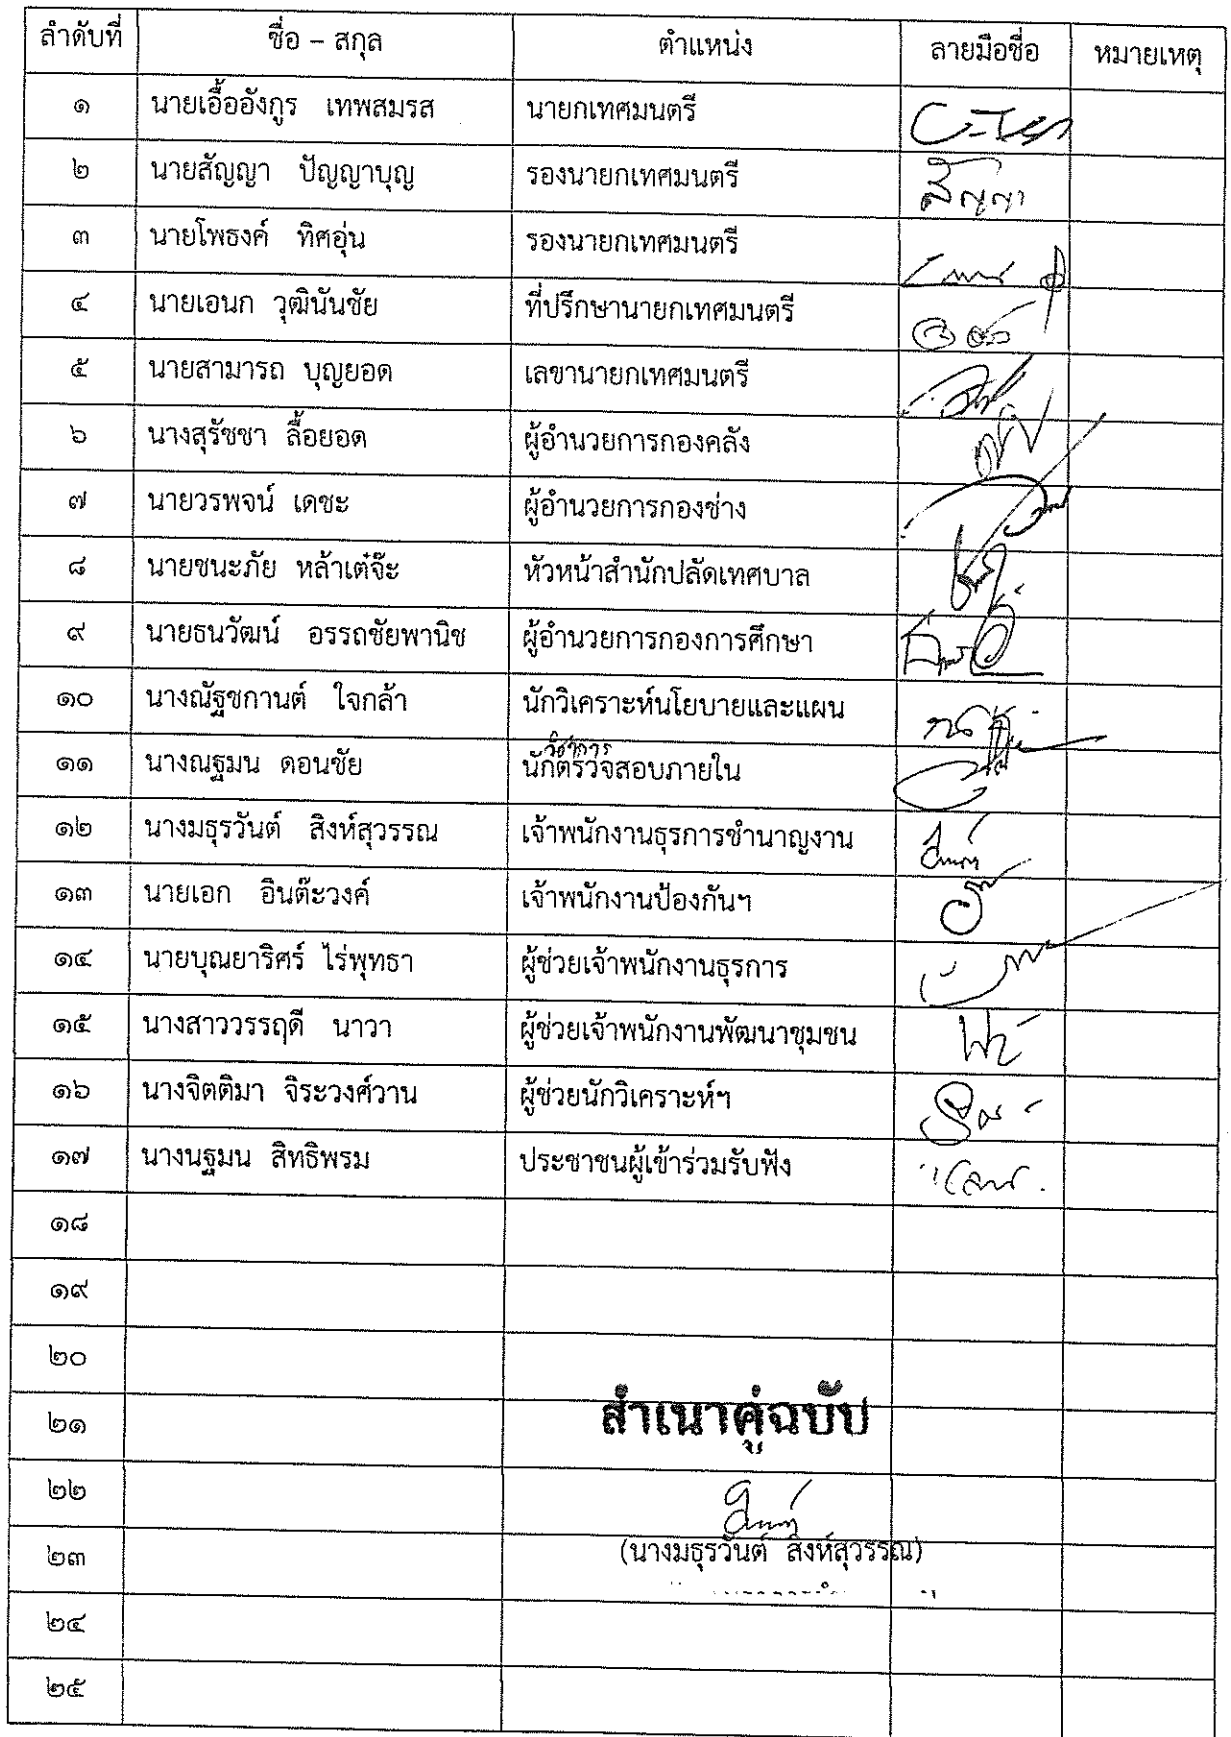 ลำดับที่ ชื่อ – สกุล ตำแหน่ง ลายมือชื่อ หมายเหตุ
๑ นายเอื้ออังกูร เทพสมรส นายกเทศมนตรี
๒ นายสัญญา ปัญญาบุญ รองนายกเทศมนตรี สัญญา
๓ นายโพธงค์ ทิศอุ่น รองนายกเทศมนตรี
๔ นายเอนก วุฒินันชัย ที่ปรึกษานายกเทศมนตรี
๕ นายสามารถ บุญยอด เลขานายกเทศมนตรี
๖ นางสุรัชชา ลื้อยอด ผู้อำนวยการกองคลัง
๗ นายวรพจน์ เดชะ ผู้อำนวยการกองช่าง
๘ นายชนะภัย หล้าเต๋จ๊ะ หัวหน้าสำนักปลัดเทศบาล
๙ นายธนวัฒน์ อรรถชัยพานิช ผู้อำนวยการกองการศึกษา
๑๐ นางณัฐชกานต์ ใจกล้า นักวิเคราะห์นโยบายและแผน
วิชาการ
๑๑ นางณฐมน ดอนชัย นักตรวจสอบภายใน
๑๒ นางมธุรวันต์ สิงห์สุวรรณ เจ้าพนักงานธุรการชำนาญงาน
๑๓ นายเอก อินต๊ะวงค์ เจ้าพนักงานป้องกันฯ
๑๔ นายบุณยาริศร์ ไร่พุทธา ผู้ช่วยเจ้าพนักงานธุรการ
๑๕ นางสาววรรฤดี นาวา ผู้ช่วยเจ้าพนักงานพัฒนาชุมชน
๑๖ นางจิตติมา จิระวงศ์วาน ผู้ช่วยนักวิเคราะห์ฯ
๑๗ นางนฐมน สิทธิพรม ประชาชนผู้เข้าร่วมรับฟัง
๑๘
๑๙
๒๐
๒๑ สำเนาคู่ฉบับ
๒๒
๒๓ (นางมธุรวันต์ สิงห์สุวรรณ)
๒๔
๒๕